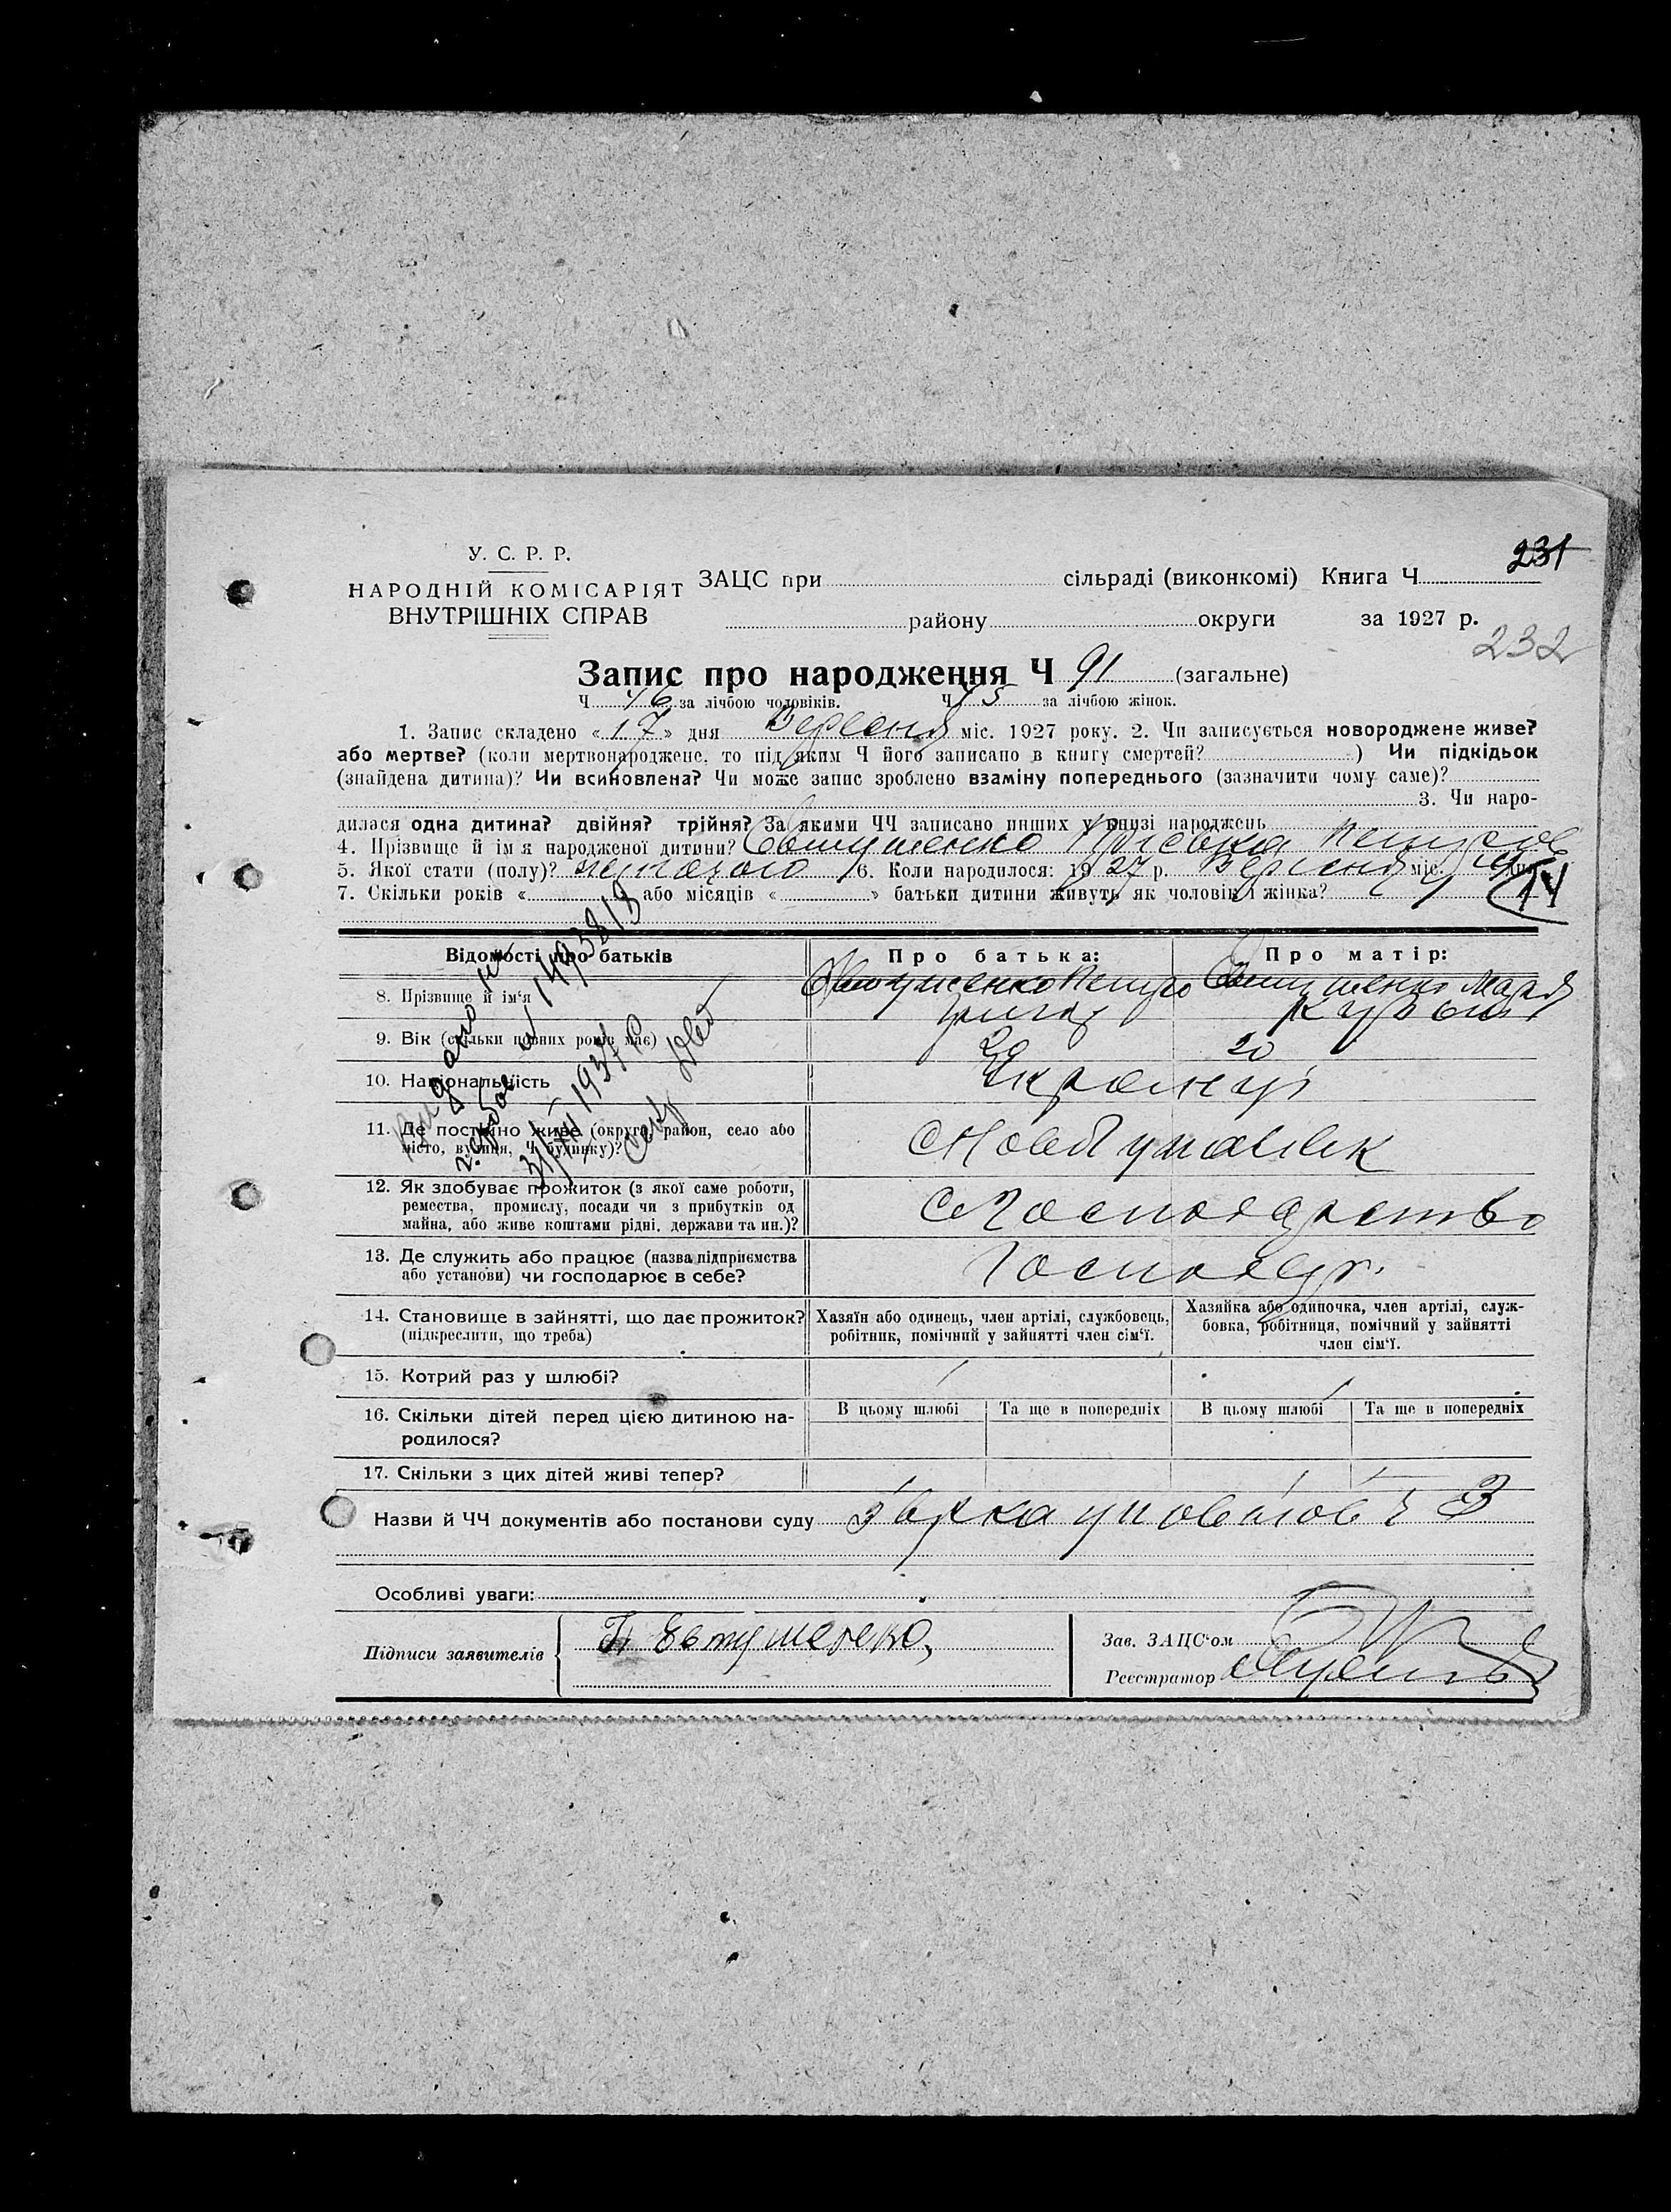 231
У. С. Р. Р.
НАРОДНІЙ КОМІСАРІЯТ
ВНУТРІШНІХ СПРАВ
ЗАЦС при сільраді (виконкомі) Книга Ч
району округи за 1927 р.
232
Запис про народження Ч 91 (загальне)
Ч 46 за лічбою чоловіків. Ч 45 за лічбою жінок.
1. Запис складено «17» дня Вересня міс. 1927 року. 2. Чи записується новороджене живе?
або мертве? (коли мертвонароджене, то під яким Ч його записано в книгу смертей? ) Чи підкідьок
(знайдена дитина)? Чи всиновлена? Чи може запис зроблено взаміну попереднього (зазначити чому саме)?
3. Чи наро-
дилася одна дитина? двійня? трійня? За якими ЧЧ записано инших у книзі народжень
4. Прізвище й ім'я народженої дитини? Євтушенко
5. Якої стати (полу)? 6. Коли народилося: 1927 р. Вересня міс. 14
7. Скільки років « або місяців « » батьки дитини живуть як чоловік і жінка?
Відомості про батьків Про батька: Про матір:
8. Прізвище й ім'я Євтушенко Петро Євтушенко Марія
9. Вік (скільки повних років має) 20
10. Національність Українці
11. Де постійно живе (округа, район, село або
місто, вулиця, Ч будинку)?
1493818
1937 р.
12. Як здобуває прожиток (з якої саме роботи,
ремества, промислу, посади чи з прибутків од
майна, або живе коштами рідні, держави та ин.)?
13. Де служить або працює (назва підприємства
або установи) чи господарює в себе? Господар.
14. Становище в зайнятті, що дає прожиток?
(підкреслити, що треба)
Хазяїн або одинець, член артілі, службовець,
робітник, помічний у зайнятті член сім'ї.
Хазяйка або одиночка, член артілі, служ-
бовка, робітниця, помічний у зайнятті
член сім'ї.
15. Котрий раз у шлюбі?
16. Скільки дітей перед цією дитиною на-
родилося?
В цьому шлюбі Та ще в попередніх В цьому шлюбі Та ще в попередніх
17. Скільки з цих дітей живі тепер?
Назви й ЧЧ документів або постанови суду
Особливі уваги:
Підписи заявителів П Евтушенко,
Зав. ЗАЦС'ом
Реєстратор